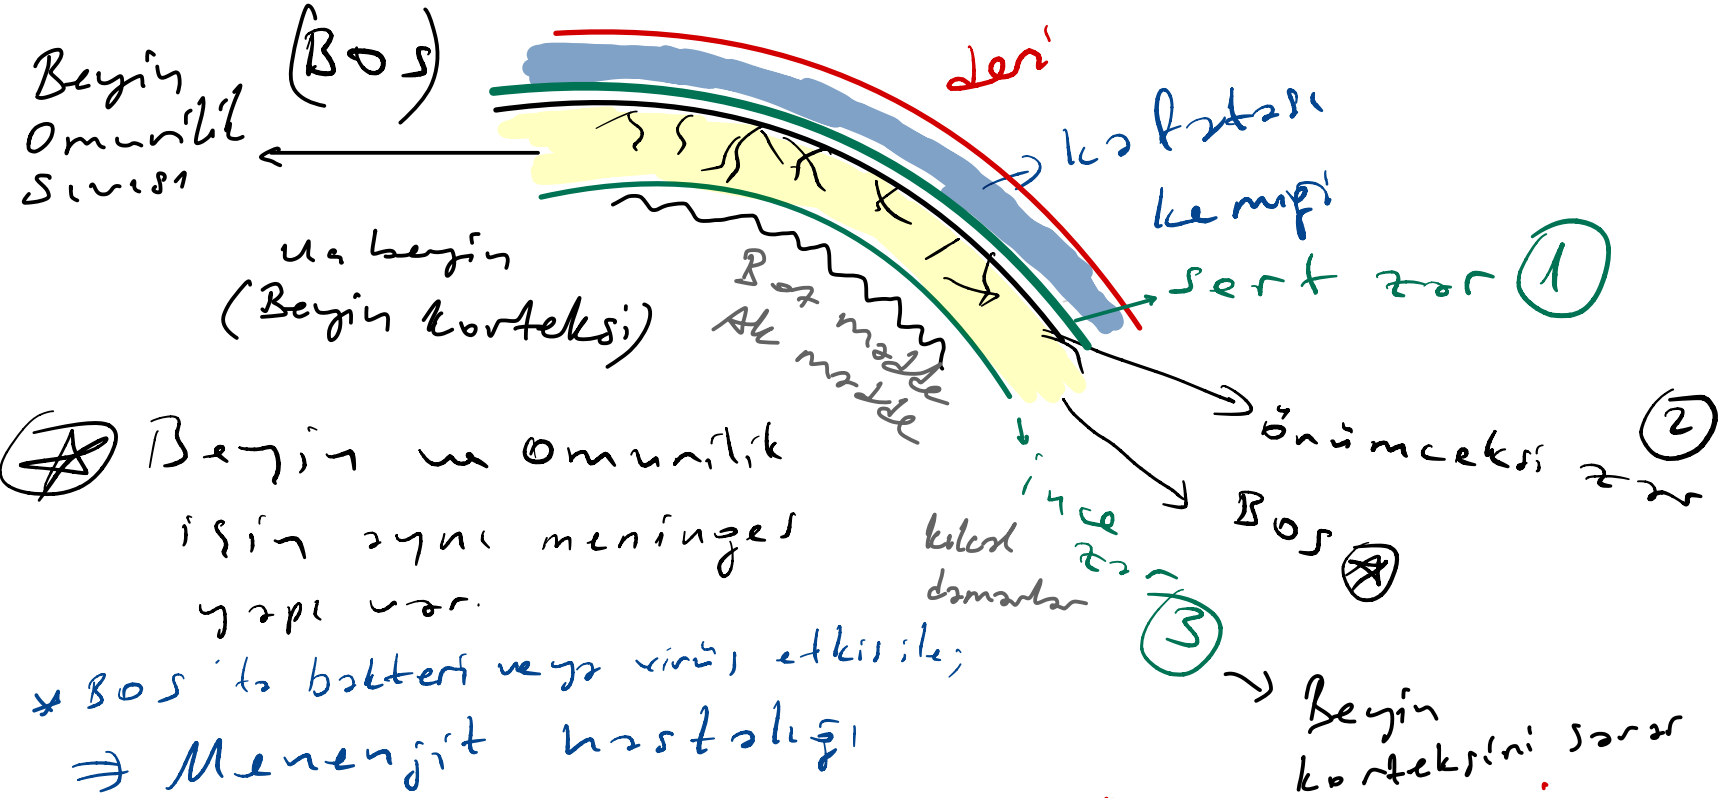 Beyin
Omurilik
sıvısı
(BOS)
deri
kafatası
kemiği
sert zar 1
Ua beyin
(Beyin korteksi)
Boz madde
Ak madde
örümceksi zar 2
BOS
ince
zar
3
kılcal
damarlar
Beyin
korteksini sarar
Beyin ve Omurilik
için aynı meninges
yapı var.
* BOS'ta bakteri veya virüs etkisile;
⇒ Menenjit hastalığı